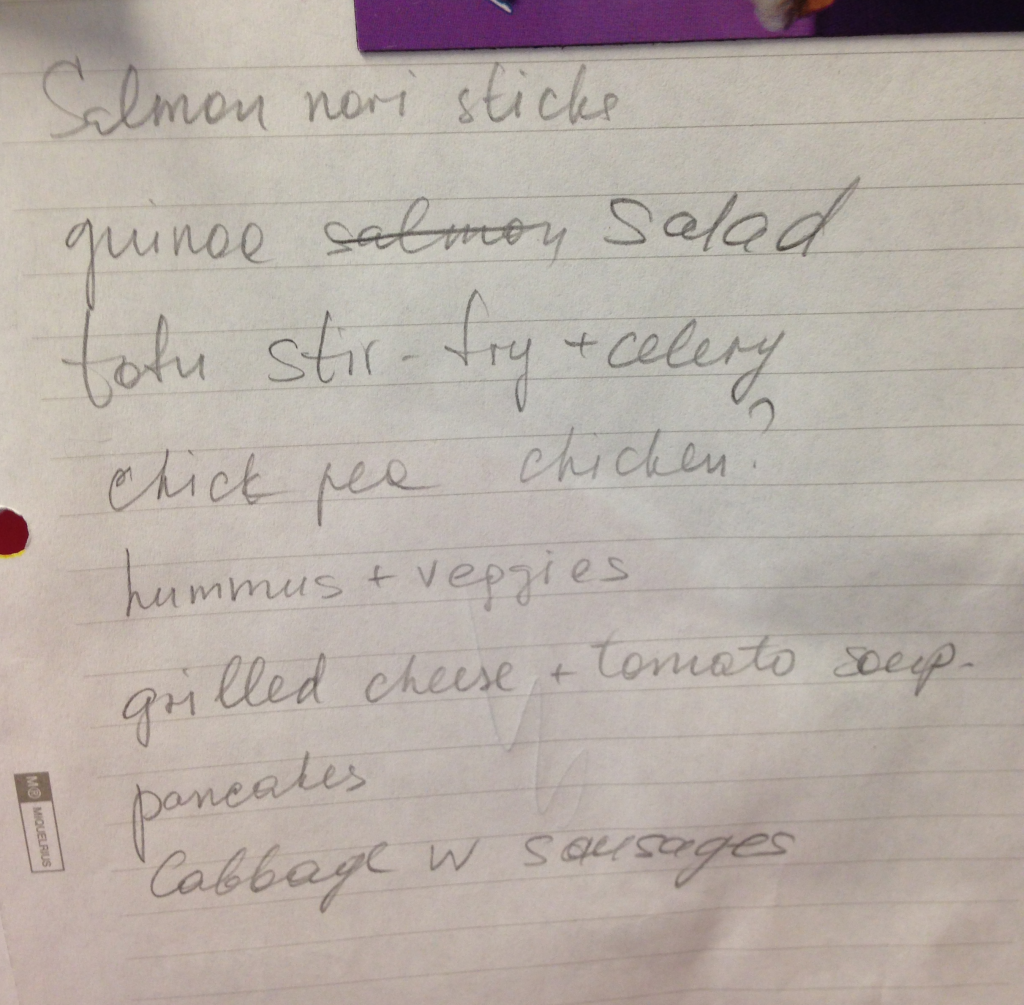 Salmon nori sticks
quinoa salmon salad
tofu stir-fry + celery
chick pea chicken?
hummus + veggies
grilled cheese + tomato soup.
pancakes
Cabbage w sausages
MIQUELRIUS